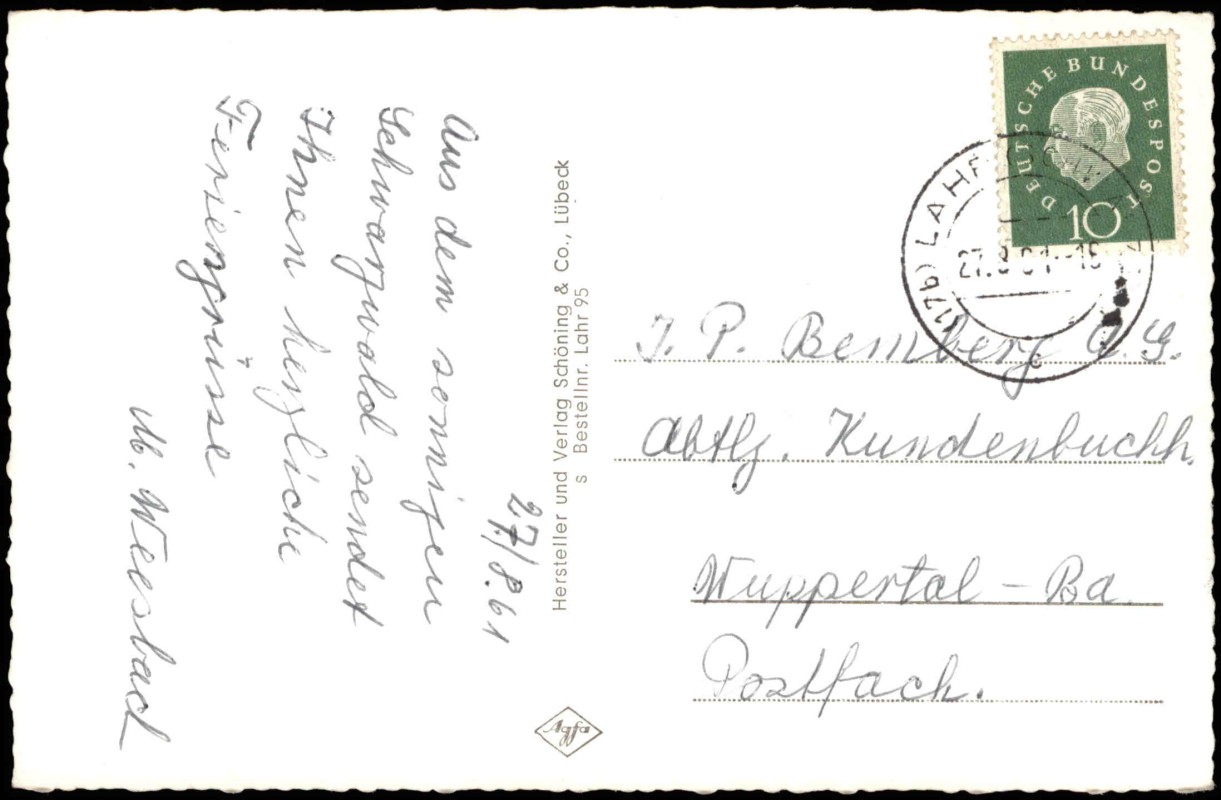 27/8.61
Aus dem sonnigen
Schwarzwald sendet
Ihnen herzliche
Feriengrüsse
M. Weesbach
Hersteller und Verlag Schöning & Co., Lübeck
S Bestellnr. Lahr 95
Agfa
DEUTSCHE BUNDESPOST
10
(17b) LAHR
27.8.61.-16
J. P. Bemberg A.G.
Abtlg. Kundenbuchh.
Wuppertal - Ba.
Postfach.